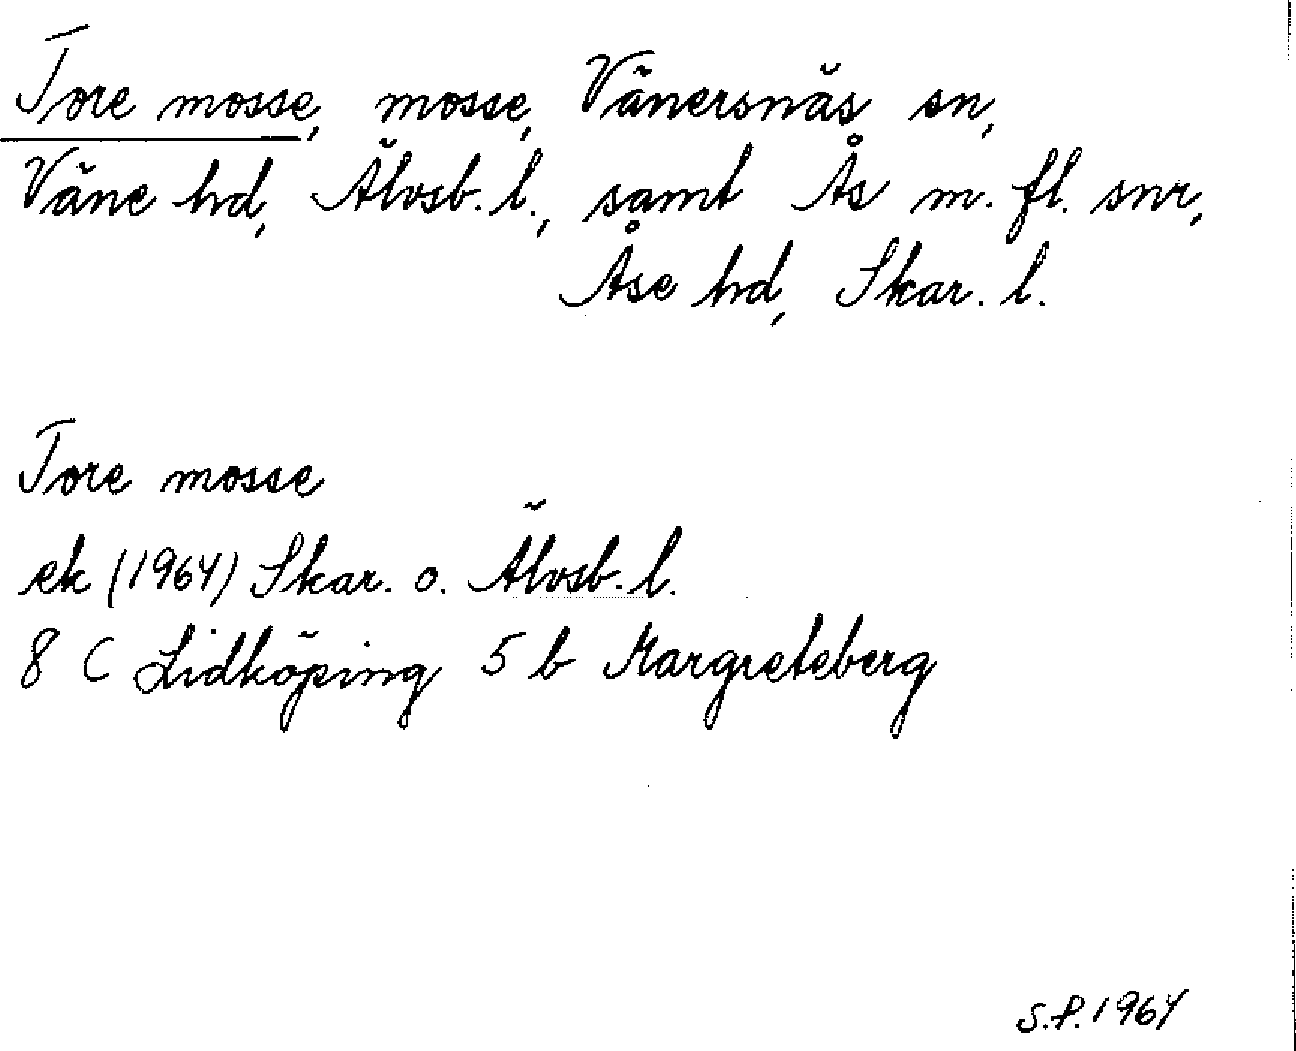 Tore mosse, mosse, Vänersnäs sn,
Väne hd, Älvsb. l., samt Ås m. fl. snr,
Åse hd, Skar. l.
Tore mosse
ek (1964) Skar. o. Älvsb. l.
8 C Lidköping 5 b Margreteberg
S.P. 1964